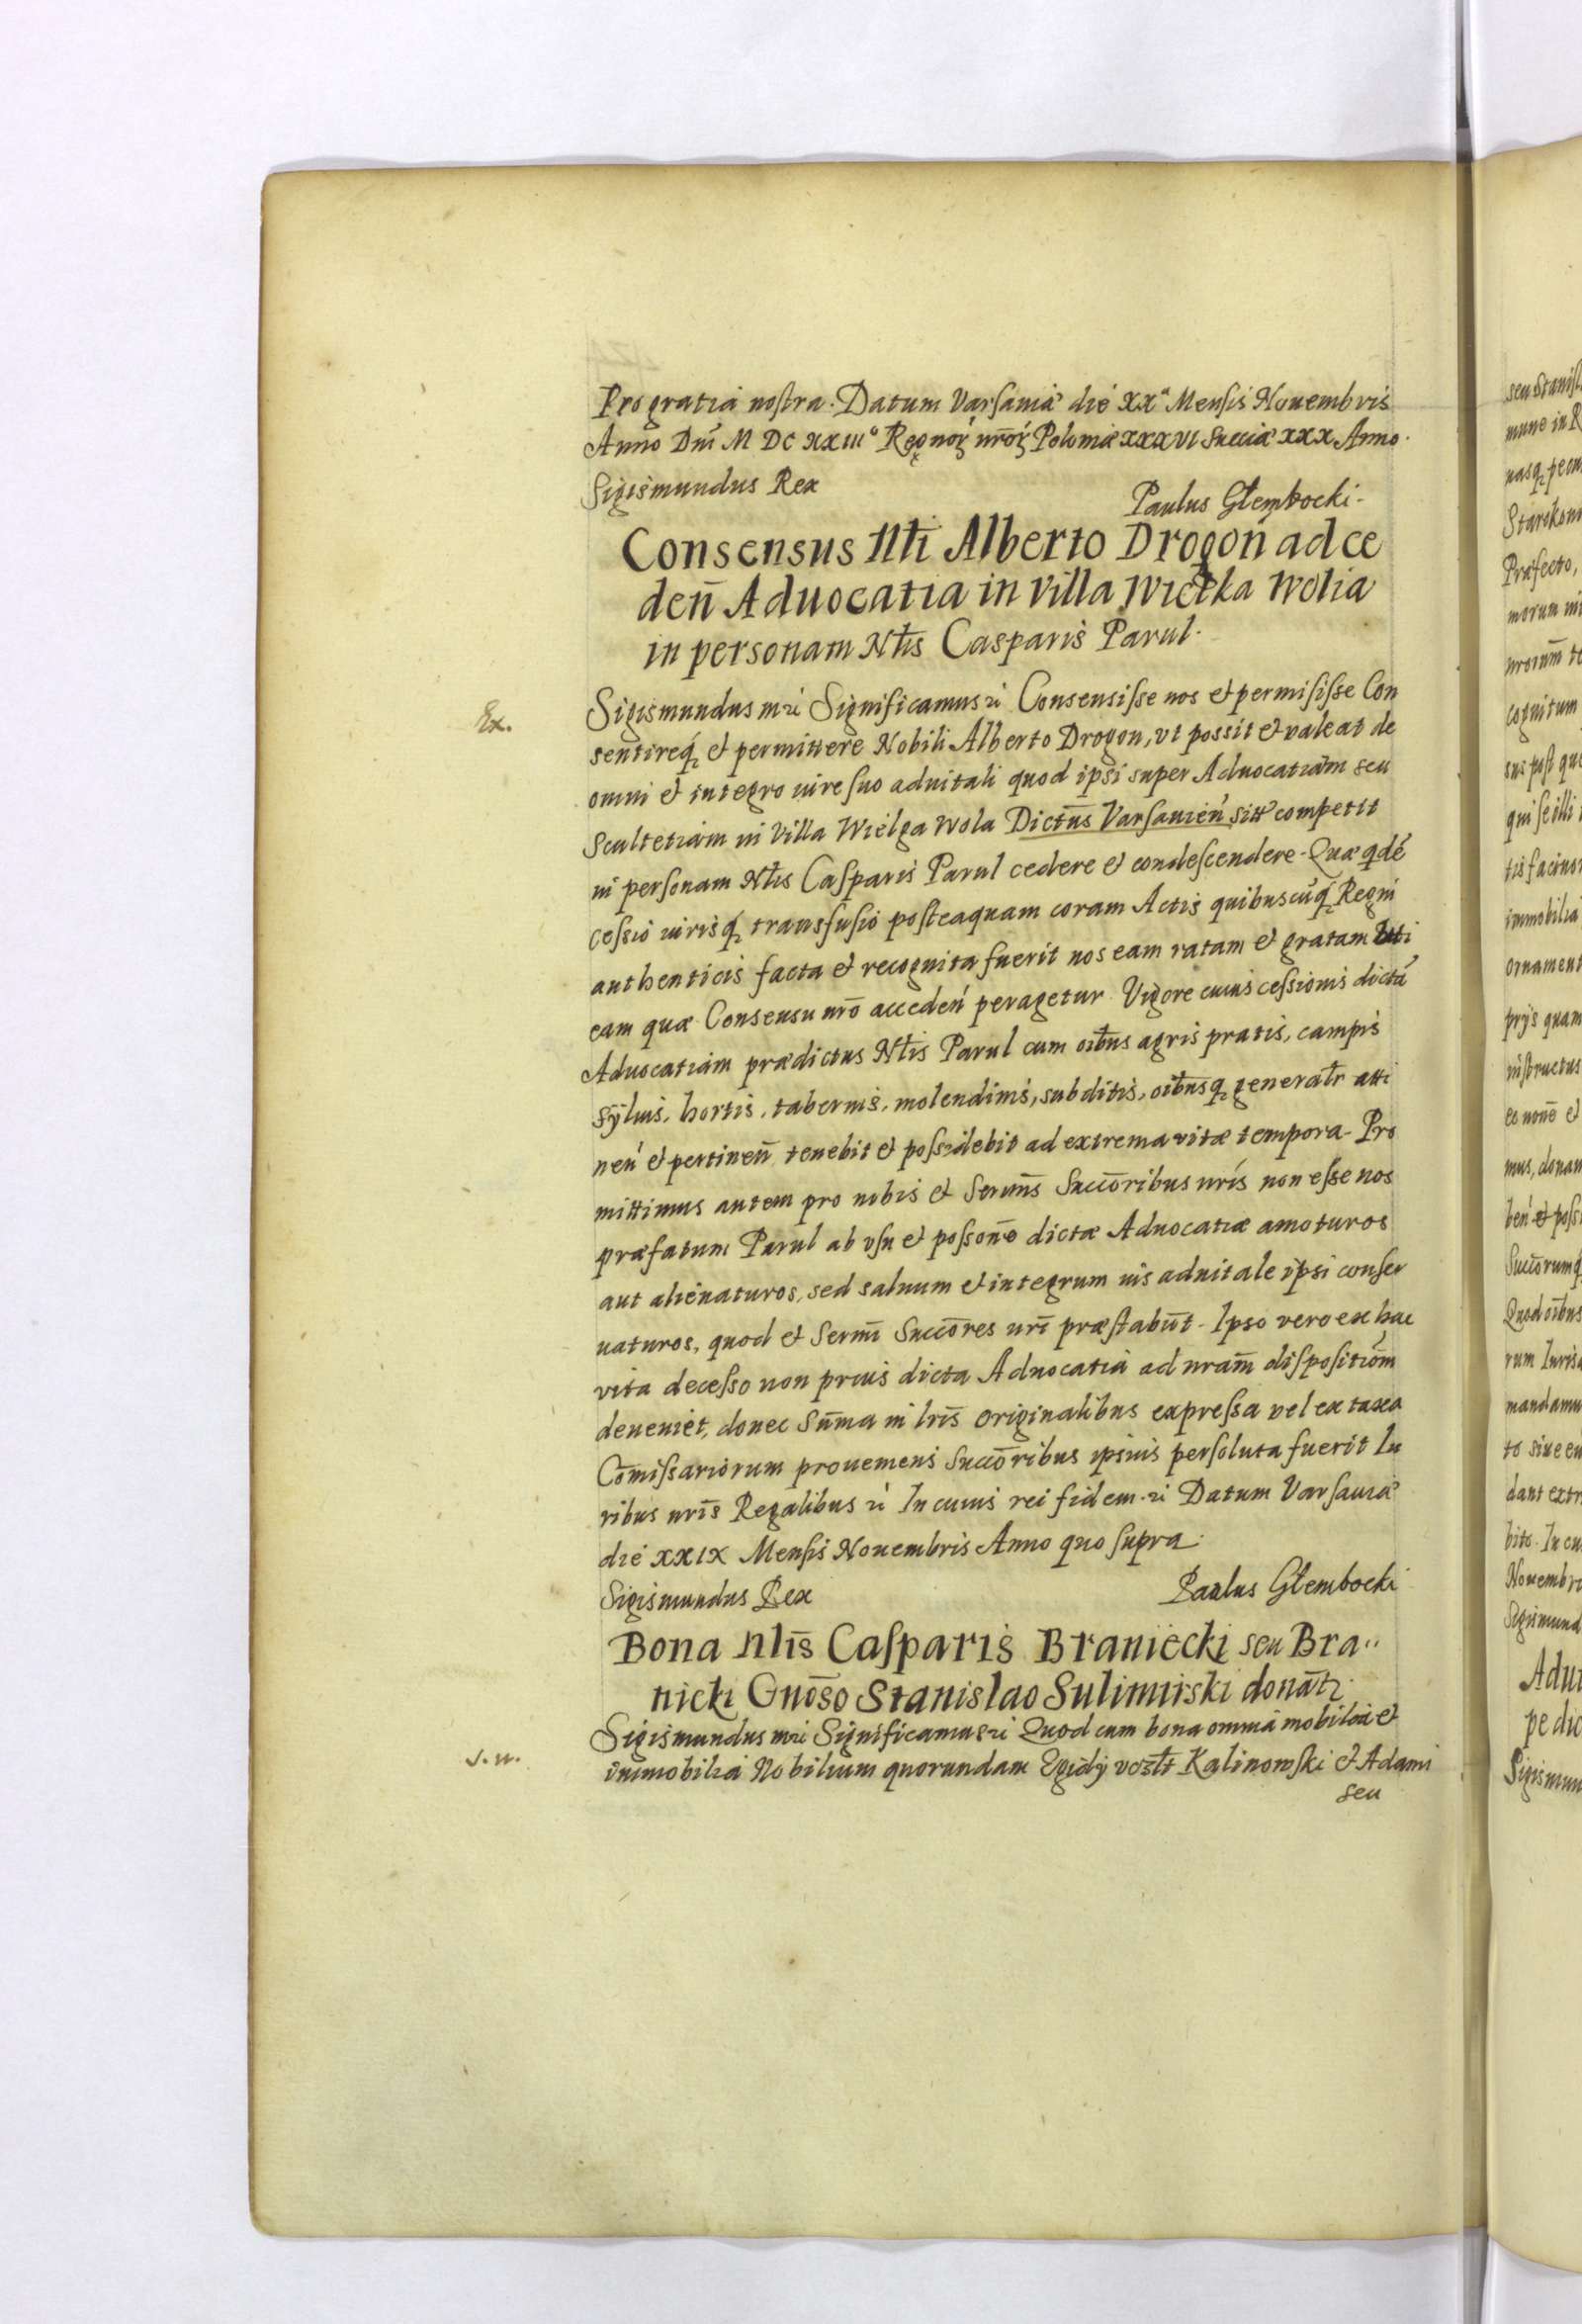 Pro gratia nostra. Datum Varsaviæ die XXª Mensis Nouembris
Anno Dni M DC XXIIIº Regnor nror Poloniæ XXXVI Sueciæ XXX Anno.
Sigismundus Rex
Paulus Głembocki.
Consensus Nłi Alberto Drogon ad ce
den Aduocatia in Villa Wielka Wolia
in personam Nłis Casparis Parul.
Ex.
Sigismundus etc Significamus etc Consensisse nos et permisisse Con
sentireq et permittere Nobili Alberto Drogon, vt possit et valeat de
omni et integro iure suo aduitali quod ipsi super Aduocatiam seu
Scultetiam in Villa Wielga Wola Dictus Varsauien sitt competit
in personam Nłis Casparis Parul cedere et condescendere. Quæ qdé
cessio iurisq transfusio posteaquam coram Actis quibuscuq Regni
authenticis facta et recognita fuerit nos eam ratam et gratam Uti
eam quæ Consensu nrō acceden peragetur. Vigore cuius cessionis dictá
Aduocatiam prædictus Nłis Parul cum oibus agris pratis, campis
syluis, hortis, tabernis, molendinis, subditis, oibusq generałr atti
nen et pertinen tenebit et possidebit ad extrema vitæ tempora. Pro
mittimus autem pro nobis et Sermis Succoribus nris non esse nos
præfatum Parul ab vsu et possone dictæ Aduocatiæ amoturos
aut alienaturos, sed saluum et integrum ius aduitale ipsi conser
uaturos, quod et Sermi Succores nri præstabut. Ipso vero ex hac
vita decesso non prius dicta Aduocatia ad nram dispositiom
deueniet, donec Sūma in lris originalibus expressa vel ex taxa
Comissariorum proueniens Succoribus ipsius persoluta fuerit Iu
ribus nris Regalibus etc In cuius rei fidem etc Datum Varsauiæ
die XXIX Mensis Nouembris Anno quo supra.
Sigismundus Rex
Paulus Głembocki
Bona Nlis Casparis Braniecki seu Bra
nicki Gnoso Stanislao Sulimirski donatr
Sigismundus etc Significamus etc Quod cum bona omnia mobilia et
immobilia Nobilium quorundam Egidy Kalinowski et Adami
seu